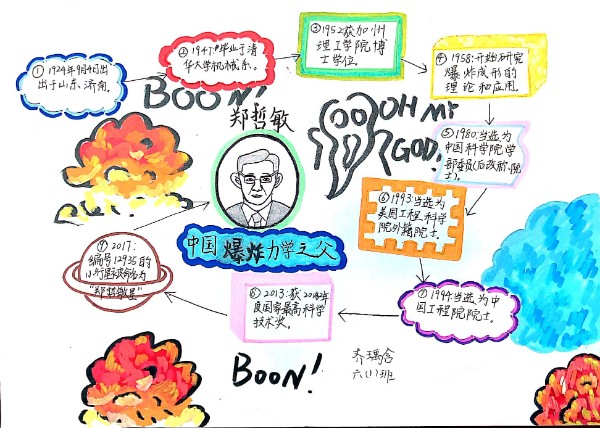 ① 1924年9月4日出
出于山东、济南。
②1947:毕业于清
华大学机械系。
③1952获加州
理工学院博
士学位。
④1958:开始研究
爆炸成形的
理论和应用。
⑤1980:当选为
中国科学院学
部委员(后改称院
士)。
⑥1993:当选为
美国工程科学
院外籍院士。
⑦1994:当选为中
国工程院院士。
⑧2013:获2012年
度国家最高科学
技术奖。
⑨2017:
编号12935的
小行星被命名为
“郑哲敏星”
BOON!
郑哲敏
OH My
GOD!
中国爆炸力学之父
BOON!
六(1)班